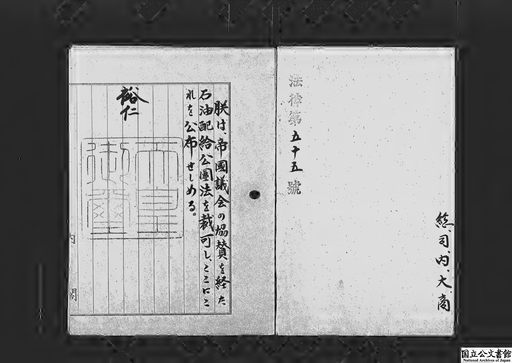 法律第五十五號
総、司、内、大、商
朕は、帝國議会の協賛を経た
石油配給公團法を裁可し、ここにこ
れを公布せしめる。
裕仁
天皇
御璽
内
閣
国立公文書館
National Archives of Japan